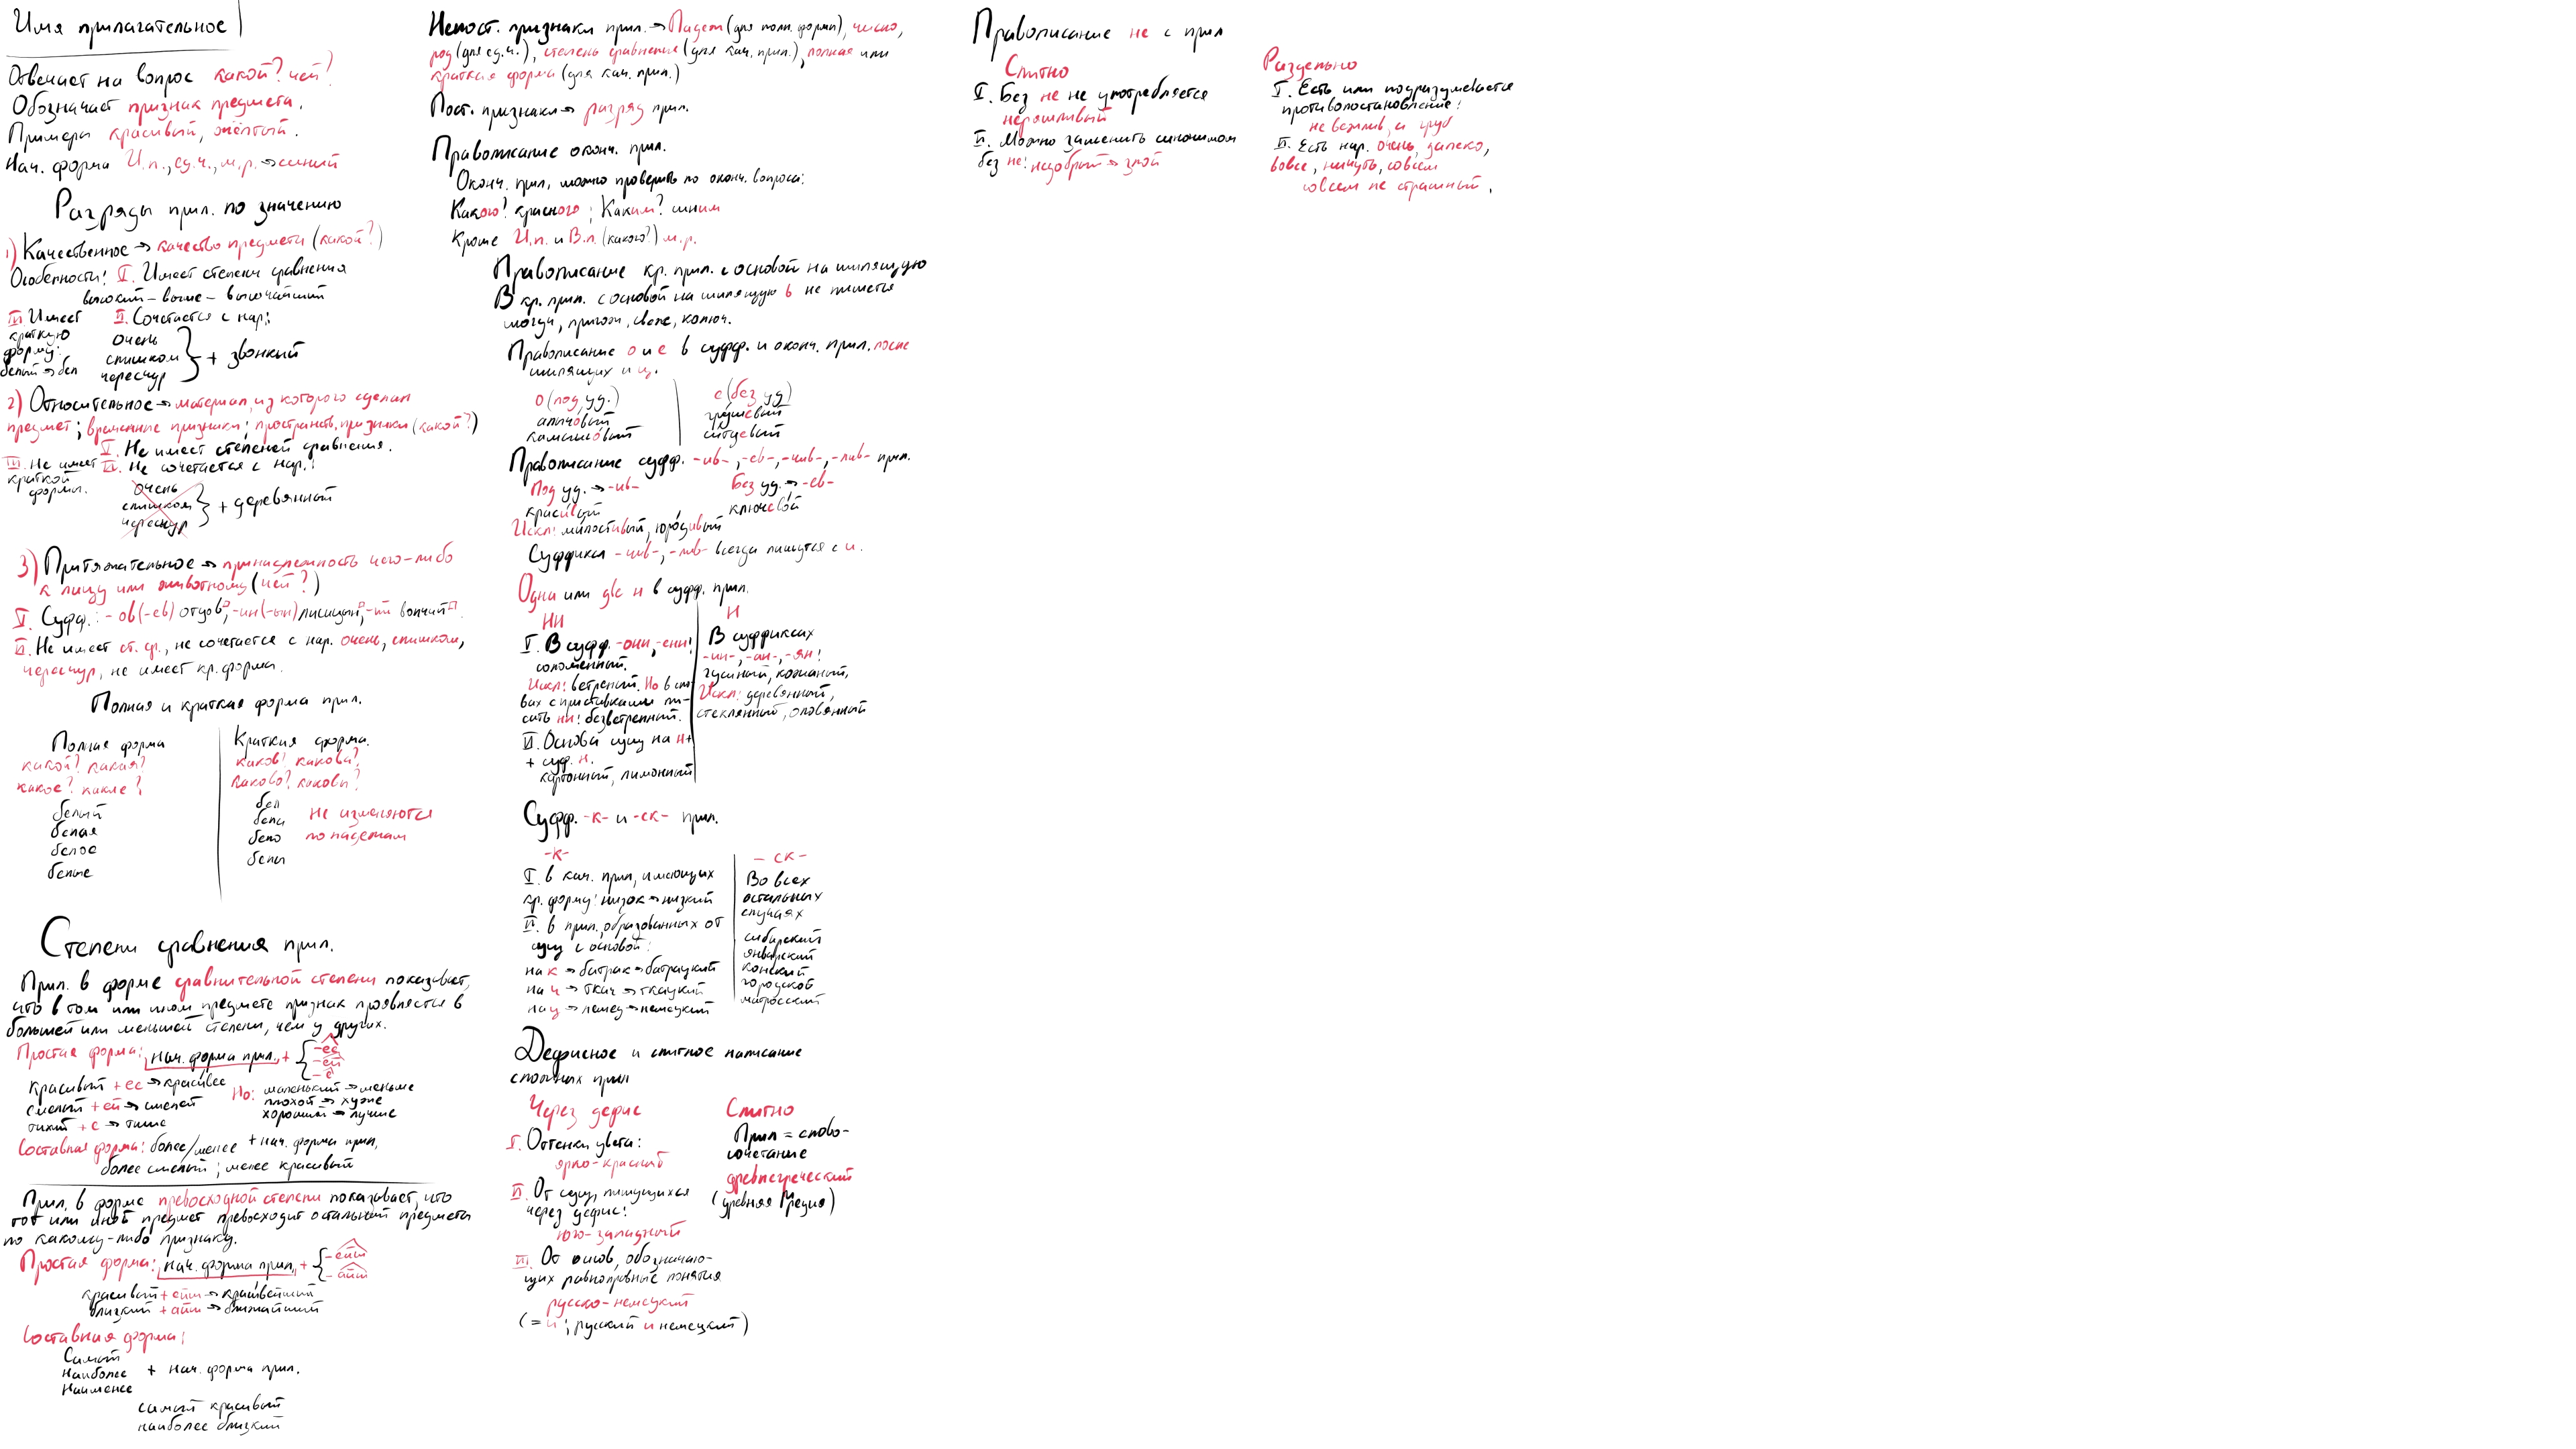 Имя прилагательное
Отвечает на вопрос какой? чей?
Обозначает признак предмета.
Примеры красивый, жёлтый.
Нач. форма И.п., ед.ч., м.р. → синий
Разряды прил. по значению
1) Качественное → качество предмета (какой?)
Особености: I. Имеет степени сравнения
высокий – выше – высочайший
II. Сочетается с нар.:
очень
слишком
чересчур
} + звонкий
III. Имеет
краткую
форму:
белый → бел
2) Относительное → материал, из которого сделан
предмет; временные признаки; пространств. признаки (какой?)
I. Не имеет степеней сравнения.
II. Не сочетается с нар.:
очень
слишком
чересчур
} + деревянный
III. Не имеет
краткой
формы.
3) Притяжательное → принадлежность чего-либо
к лицу или животному (чей?)
I. Суфф.: -ов(-ев) отцов, -ин(-ын) лисицын, -ий волчий
II. Не имеет ст. ср., не сочетается с нар. очень, слишком,
чересчур, не имеет кр. форма.
Полная и краткая форма прил.
Полная форма
какой? какая?
какое? какие?
белый
белая
белое
белые
Краткая форма.
каков? какова?
каково? каковы?
бел
бела
бело
белы
не изменяются
по падежам
Степени сравнения прил.
Прил. в форме сравнительной степени показывает,
что в том или ином предмете признак проявляется в
большей или меньшей степени, чем у других.
Простая форма: нач. форма прил. + { -ее
-ей
-е
красивый + ее → красивее
смелый + ей → смелей
тихий + е → тише
Но: маленький → меньше
плохой → хуже
хороший → лучше
Составная форма: более/менее + нач. форма прил.
более смелый; менее красивый
Прил. в форме превосходной степени показывает, что
тот или иной предмет превосходит остальный предметы
по какому-либо признаку.
Простая форма: нач. форма прил. + { -ейш
-айш
красивый + ейш → красивейший
близкий + айш → ближайший
Составная форма:
Самый
Наиболее + нач. форма прил.
Наименее
самый красивый
наиболее близкий
Непост. признаки прил. → Падеж (для полн. формы), число,
род (для ед.ч.), степень сравнения (для кач. прил.), полная или
краткая форма (для кач. прил.)
Пост. признаки → разряд прил.
Правописание оконч. прил.
Оконч. прил. можно проверить по оконч. вопроса:
Какого? красного; Каким? синим
Кроме И.п. и В.п. (какого?) м.р.
Правописание кр. прил. с основой на шипящую
В кр. прил. с основой на шипящую ь не пишется
могуч, пригож, свеж, колюч.
Правописание о и е в суфф. и оконч. прил. после
шипящих и ц.
о (под уд.)
алычовый
камышовый
е (без уд)
грушевый
ситцевый
Правописание суфф. -ив-, -ев-, -чив-, -лив- прил.
Под уд. → -ив-
красивый
Без уд. → -ев-
ключевой
Искл: милостивый, юродивый
Суффикса -чив-, -лив- всегда пишутся с и.
Одна или две н в суфф. прил.
НН
I. В суфф. -онн, -енн:
соломенный.
Искл: ветреный. Но в сло-
вах с приставками пи-
сать нн: безветренный.
II. Основа сущ на н+
+ суф. н.
картонный, лимонный
Н
В суффиксах
-ин-, -ан-, -ян:
гусиный, кожаный,
Искл: деревянный,
стеклянный, оловянный
Суфф. -к- и -ск- прил.
-к-
I. в кач. прил, имеющих
кр. форму: низок → низкий
II. в прил., образованных от
сущ с основой:
на к → батрак → батрацкий
на ч → ткач → ткацкий
на ц → немец → немецкий
- ск -
Во всех
остальных
случаях
сибирский
январский
конский
городской
матросский
Дефисное и слитное написание
сложных прил
Через дефис
I. Оттенки цвета:
ярко-красный
II. От сущ, пишущихся
через дефис:
юго-западный
III. От основ, обозначаю-
щих равноправные понятия
русско-немецкий
(= и ; русский и немецкий)
Слитно
Прил = слово-
сочетание
древнегреческий
(древняя Греция)
Правописание не с прил
Слитно
I. Без не не употребляется
неряшливый
II. Можно заменить синонимом
без не: недобрый → злой
Раздельно
I. Есть или подразумевается
противопоставление:
не вежлив, а груб
II. Есть нар. очень, далеко,
вовсе, ничуть, совсем
совсем не страшный.